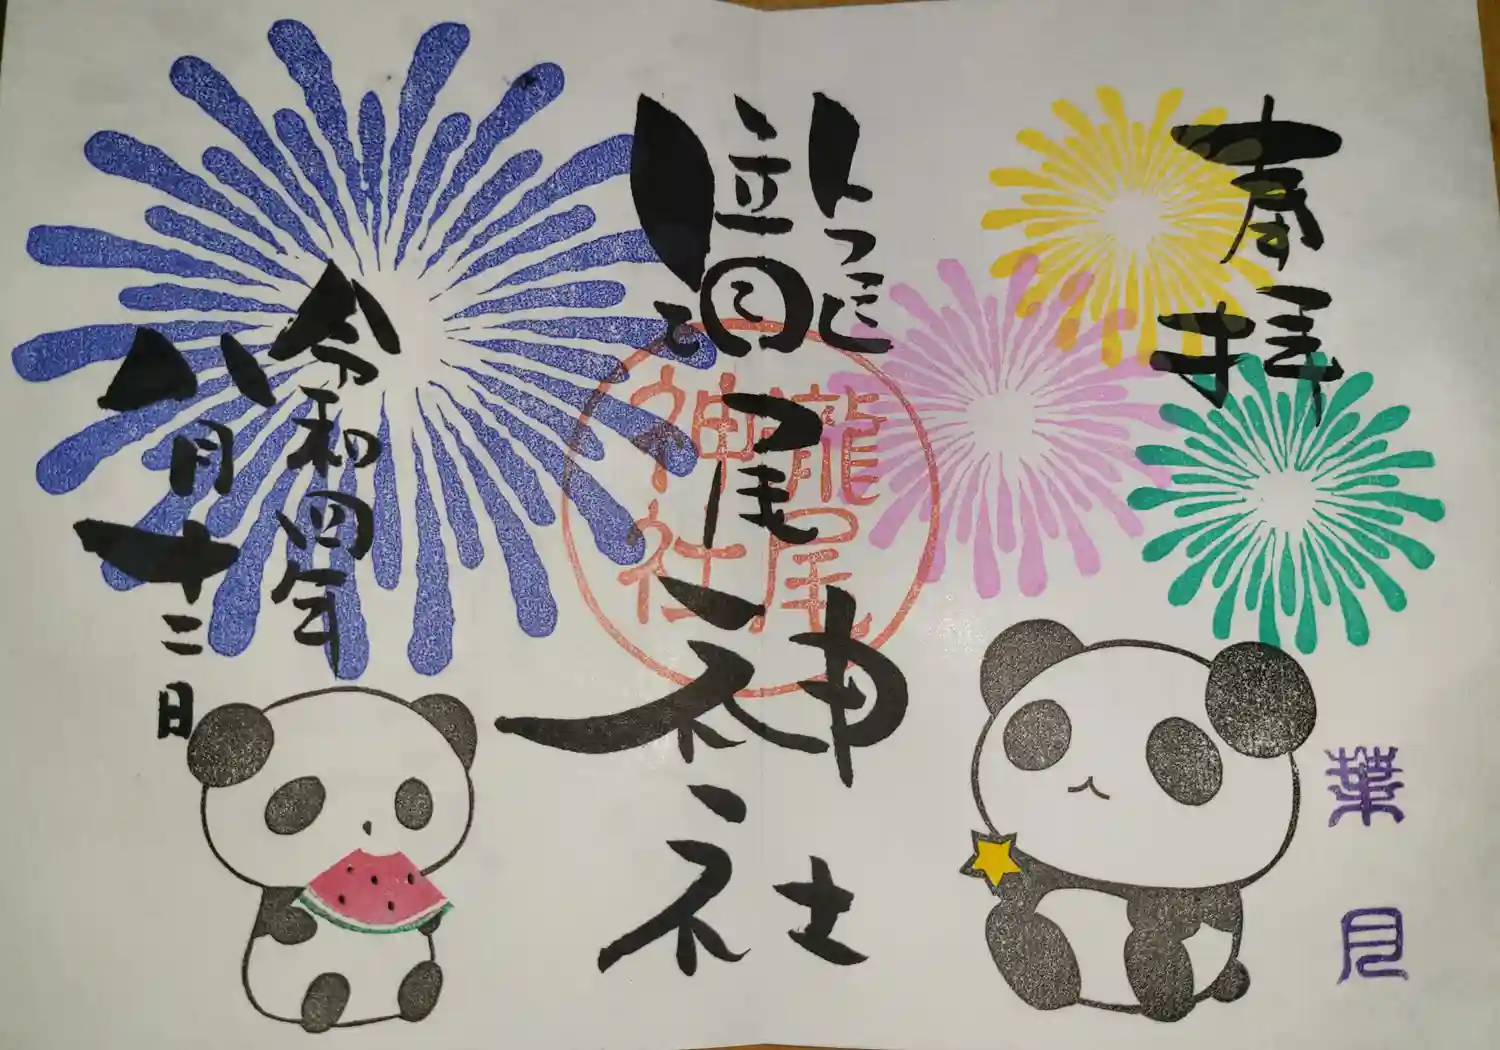 奉拝
葉月
龍尾神社
龍尾
神社
令和四年
八月十二日